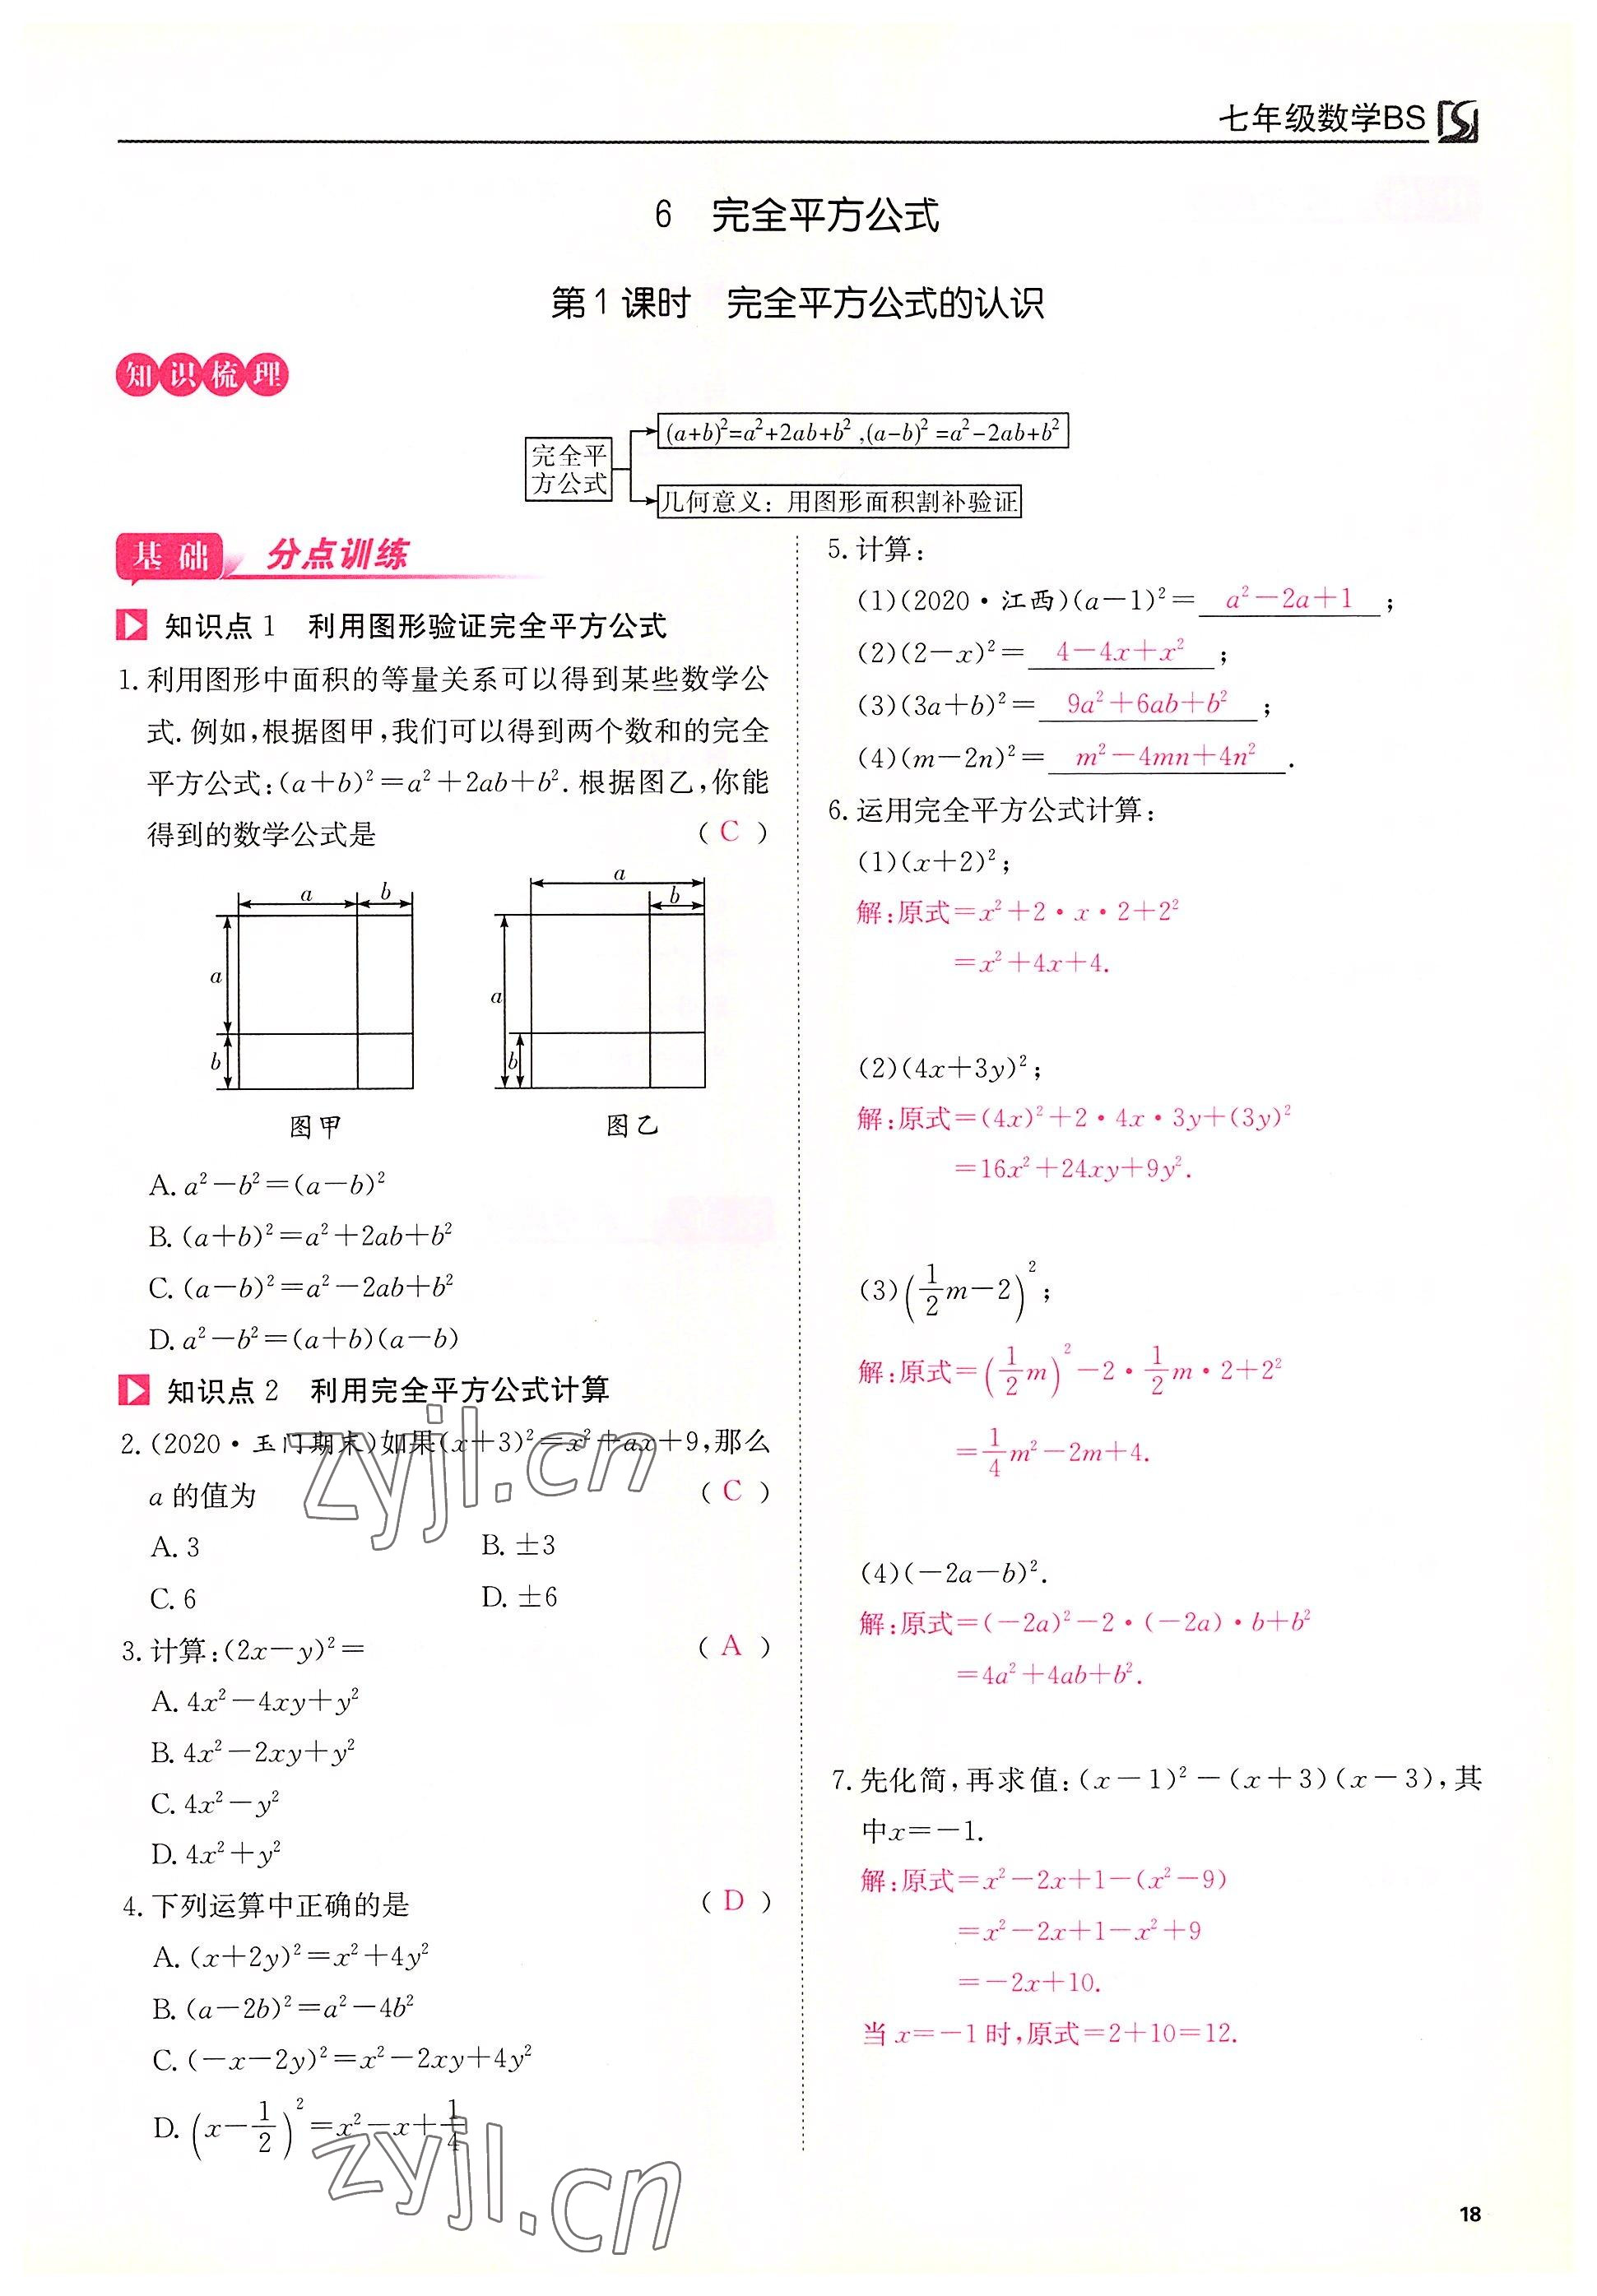 七年级数学BS
6 完全平方公式
第1课时 完全平方公式的认识
知识梳理
完全平方公式
(a+b)²=a²+2ab+b²,(a-b)²=a²-2ab+b²
几何意义：用图形面积割补验证
基础 分点训练
知识点1 利用图形验证完全平方公式
1.利用图形中面积的等量关系可以得到某些数学公
式.例如,根据图甲,我们可以得到两个数和的完全
平方公式:(a+b)²=a²+2ab+b².根据图乙,你能
得到的数学公式是 ( C )
a b
a
b
图甲
a
b
a
b
图乙
A. a²-b²=(a-b)²
B. (a+b)²=a²+2ab+b²
C. (a-b)²=a²-2ab+b²
D. a²-b²=(a+b)(a-b)
知识点2 利用完全平方公式计算
2.(2020·玉门期末)如果(x+3)²=x²+ax+9,那么
a的值为 ( C )
A. 3 B. ±3
C. 6 D. ±6
3.计算:(2x-y)²= ( A )
A. 4x²-4xy+y²
B. 4x²-2xy+y²
C. 4x²-y²
D. 4x²+y²
4.下列运算中正确的是 ( D )
A. (x+2y)²=x²+4y²
B. (a-2b)²=a²-4b²
C. (-x-2y)²=x²-2xy+4y²
D. (x-1/2)²=x²-x+1/4
5.计算:
(1)(2020·江西)(a-1)²= a²-2a+1 ;
(2)(2-x)²= 4-4x+x² ;
(3)(3a+b)²= 9a²+6ab+b² ;
(4)(m-2n)²= m²-4mn+4n² .
6.运用完全平方公式计算:
(1)(x+2)²;
解:原式=x²+2·x·2+2²
=x²+4x+4.
(2)(4x+3y)²;
解:原式=(4x)²+2·4x·3y+(3y)²
=16x²+24xy+9y².
(3)(1/2m-2)²;
解:原式=(1/2m)²-2·1/2m·2+2²
=1/4m²-2m+4.
(4)(-2a-b)².
解:原式=(-2a)²-2·(-2a)·b+b²
=4a²+4ab+b².
7.先化简,再求值:(x-1)²-(x+3)(x-3),其
中x=-1.
解:原式=x²-2x+1-(x²-9)
=x²-2x+1-x²+9
=-2x+10.
当x=-1时,原式=2+10=12.
zyjl.cn
zyjl.cn
18